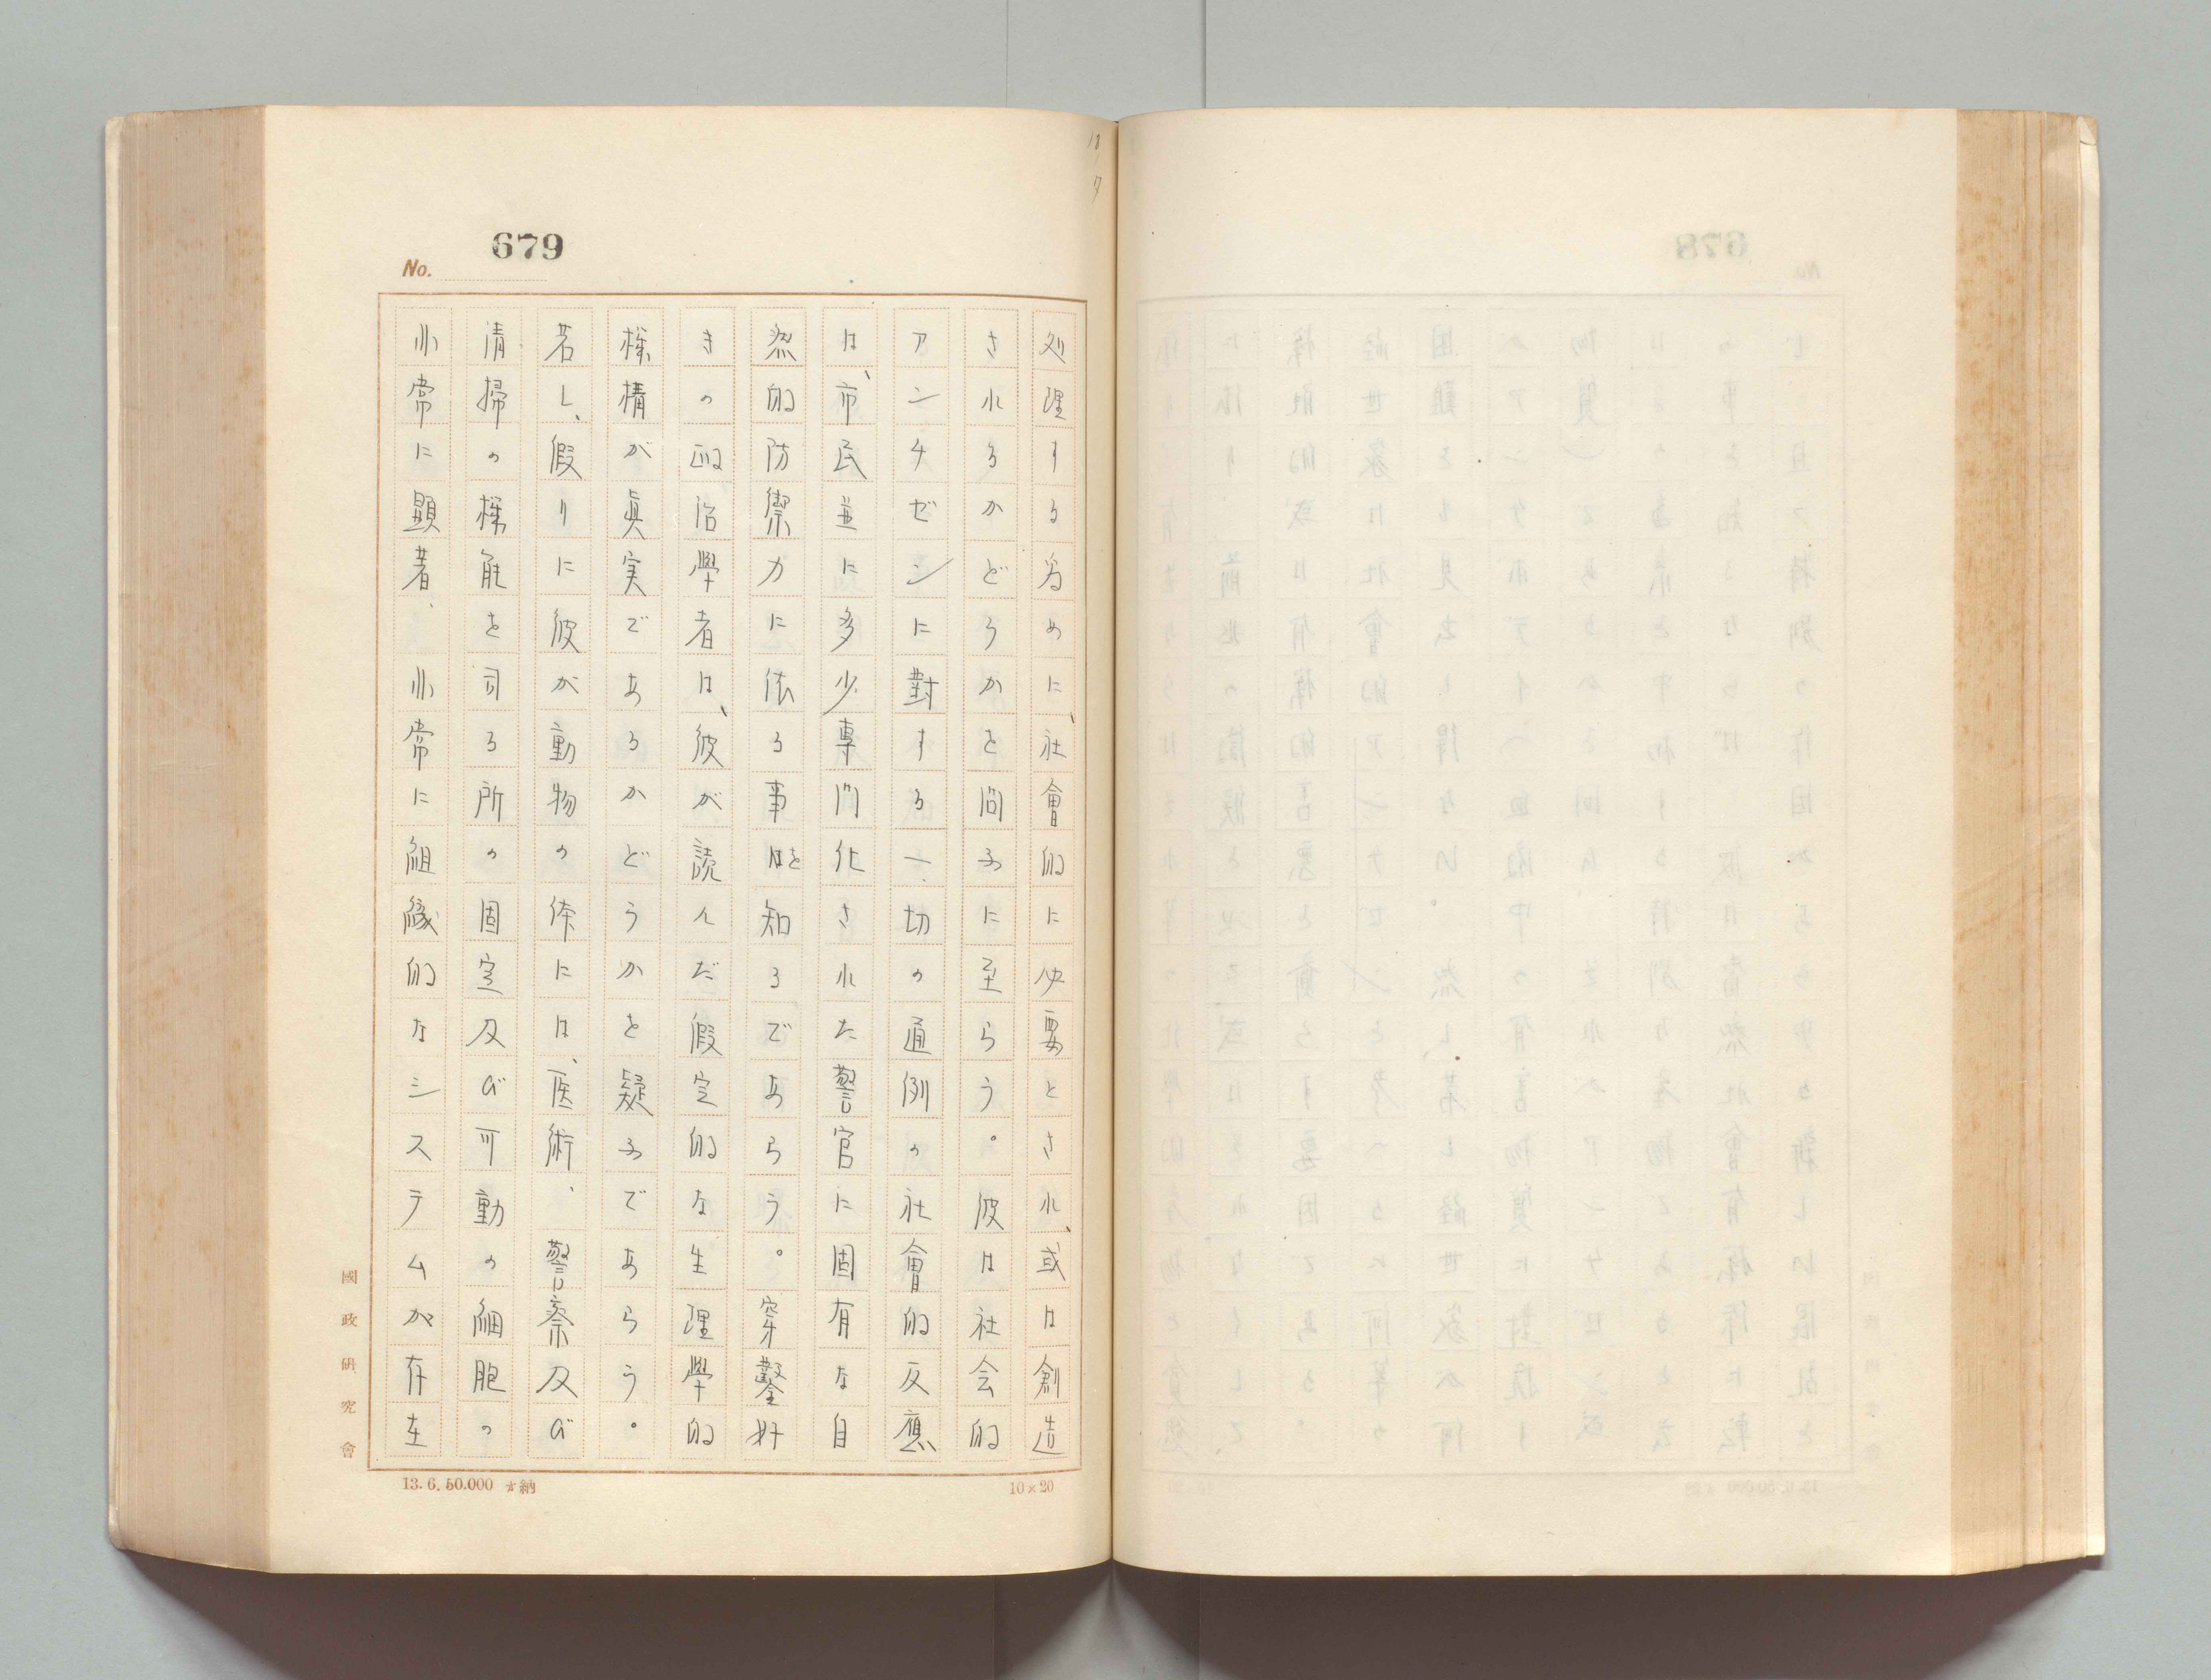 679
No.
処理する為めに、社會的に必要とされ、或は創造
されるかどうかを問ふに至らう。彼は社会的
アンチゼンに對する一切の通例の社會的反應
は、市民並に多少專門化された警官に固有な自
然的防禦力に依る事を知るであらう。穿鑿好
きの政治學者は、彼が読んだ假定的な生理學的
機構が眞実であるかどうかを疑ふであらう。
若し、假りに彼が動物の体には、医術、警察及び
清掃の機能を司る所の固定及び可動の細胞の
非常に顯著、非常に組織的なシステムが存在
國政研究會
13.6.50.000 納
10×20